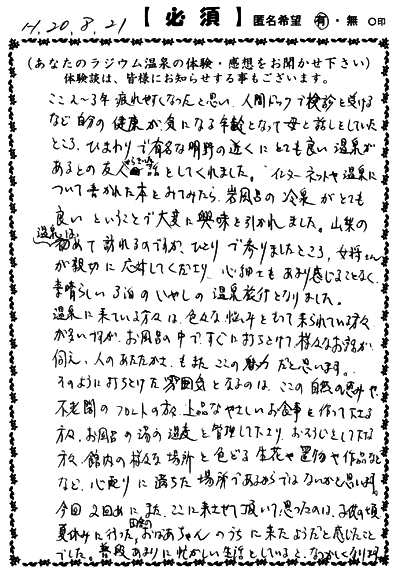 H.20.8.21 【必須】 匿名希望 有・無 ○印
(あなたのラジウム温泉の体験・感想をお聞かせ下さい)
体験談は、皆様にお知らせする事もございます。
ここ2〜3年 疲れやすくなったと思い、人間ドックで検診を受ける
など自分の健康が気になる年齢となって母と話しをしていた
ところ、ひまわりで有名な明野の近くにとても良い温泉が
あるとの友人 話をしてくれました。インターネットや温泉に
ついて書かれた本をみてみたら、岩風呂の冷泉がとても
良いということで大変に興味を引かれました。山梨の
温泉は、
初めて訪れるのですが、ひとりで参りましたところ、女将さん
が親切に応対してくださり、心細さもあまり感じることなく、
素晴らしい3泊のいやしの温泉旅行となりました。
温泉に来ている方々は、色々な悩みをもって来られている方々
が多いですが、お風呂の中で、すぐに打ちとけて様々なお話が
伺え、人のあたたかさもまたここの魅力だと思います。
そのように打ちとけた雰囲気となるのは、ここの自然の恵みや、
不老閣のフロントの方々、上品なやさしいお食事を作って下さる
方々、お風呂の湯の温度を管理して下さり、おそうじをして下さる
方々、館内の様々な場所を色どる生花や置物や作品など
など、心配りに満ちた場所であるからではないかと思います。
今回2回めに、また、ここに来させて頂いて思ったのは、子供の頃
夏休みに行った、田舎のおばあちゃんのうちに来たようだと感じたこと
でした。普段あまりに忙しい生活をしていると、なつかしくなります